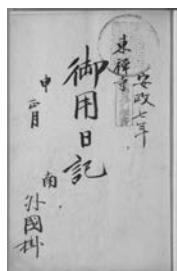 安政七年
東禅寺
御用日記
申正月
南
外國掛